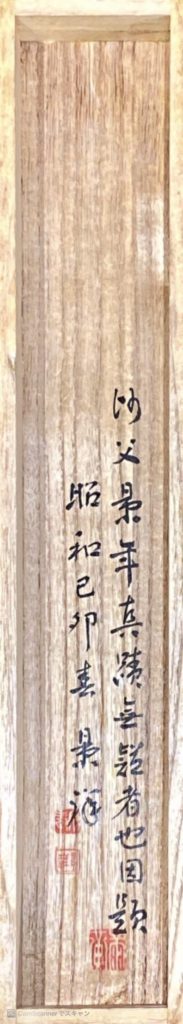 師父景年真蹟無疑者也因題
昭和己卯春 景祥
CamScannerでスキャン